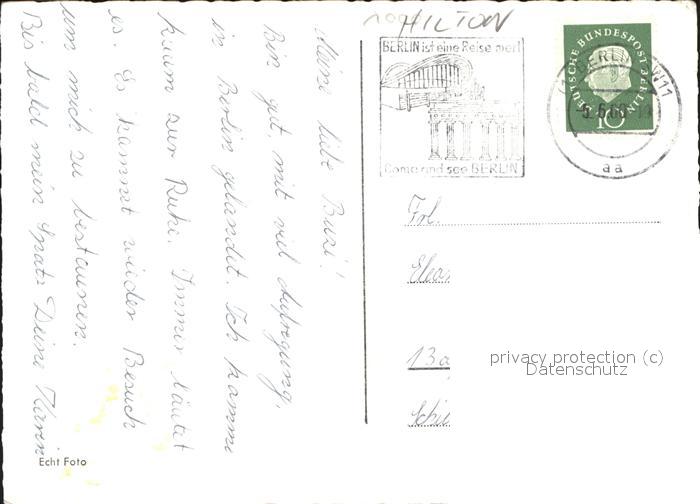 HILTON
BERLIN ist eine Reise wert
Come and see BERLIN
DEUTSCHE BUNDESPOST BERLIN
10
BERLIN SW11
aa
Meine liebe Buzi!
Bin gut mit viel Aufregung,
in Berlin gelandet. Ich komme
kaum zur Ruhe. Immer läutet
es. Es kommt wieder Besuch
um mich zu bestaunen.
Bis bald mein Spatz Deine Karin
Frl.
13a
privacy protection (c)
Datenschutz
Echt Foto